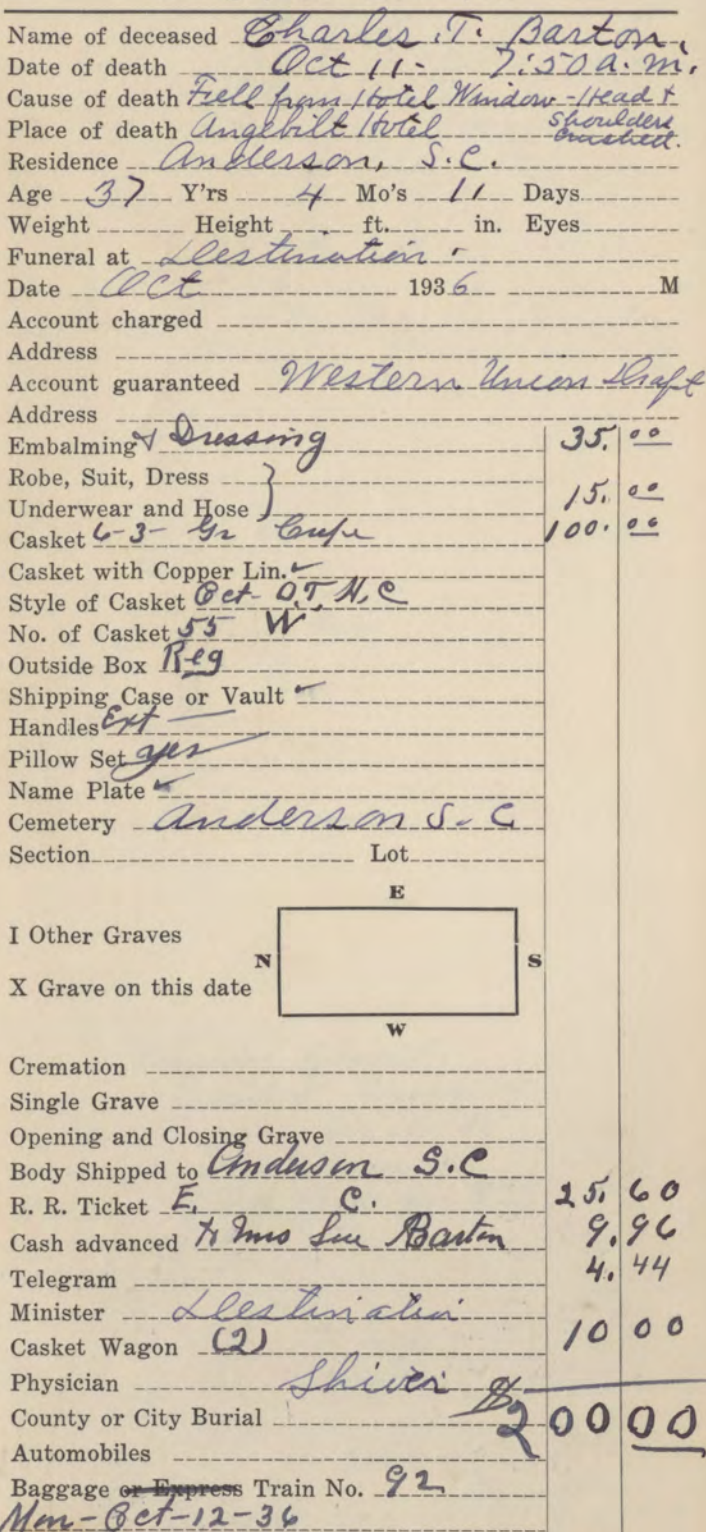 Name of deceased Charles T. Barton,
Date of death Oct 11- 7:50 a.m.
Cause of death Fell from Hotel Window - Head &
shoulders
crushed.
Place of death Angebilt Hotel
Residence Anderson, S.C.
Age 37 Y'rs 4 Mo's 11 Days
Weight Height ft. in. Eyes
Funeral at Destination.
Date Oct 1936 M
Account charged
Address
Account guaranteed Western Union Draft
Address
Embalming & Dressing 35.00
Robe, Suit, Dress
Underwear and Hose 15.00
Casket 6-3- Gr Crepe 100.00
Casket with Copper Lin.
Style of Casket Oct- O.T. N.C
No. of Casket 55 W
Outside Box Reg
Shipping Case or Vault
Handles Ext
Pillow Set yes
Name Plate
Cemetery Anderson S.C
Section Lot
E
I Other Graves
N S
X Grave on this date
W
Cremation
Single Grave
Opening and Closing Grave
Body Shipped to Anderson S.C
R. R. Ticket E. C. 25.60
Cash advanced to Mrs Sue Barton 9.96
Telegram 4.44
Minister Destination
Casket Wagon (2) 10 00
Physician
County or City Burial $200 00
Automobiles
Baggage or Express Train No. 92
Mon-Oct-12-36